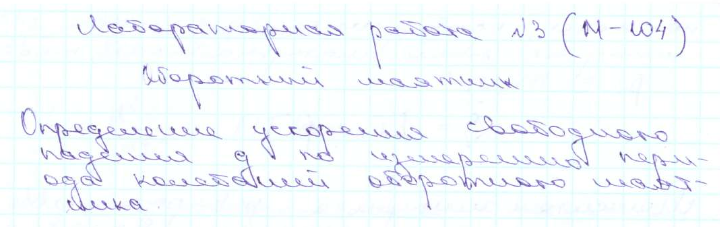 Лабораторная работа №3 (М-104)
Оборотный маятник
Определение ускорения свободного
падения g по измерению пери-
ода колебаний оборотного маят-
ника.